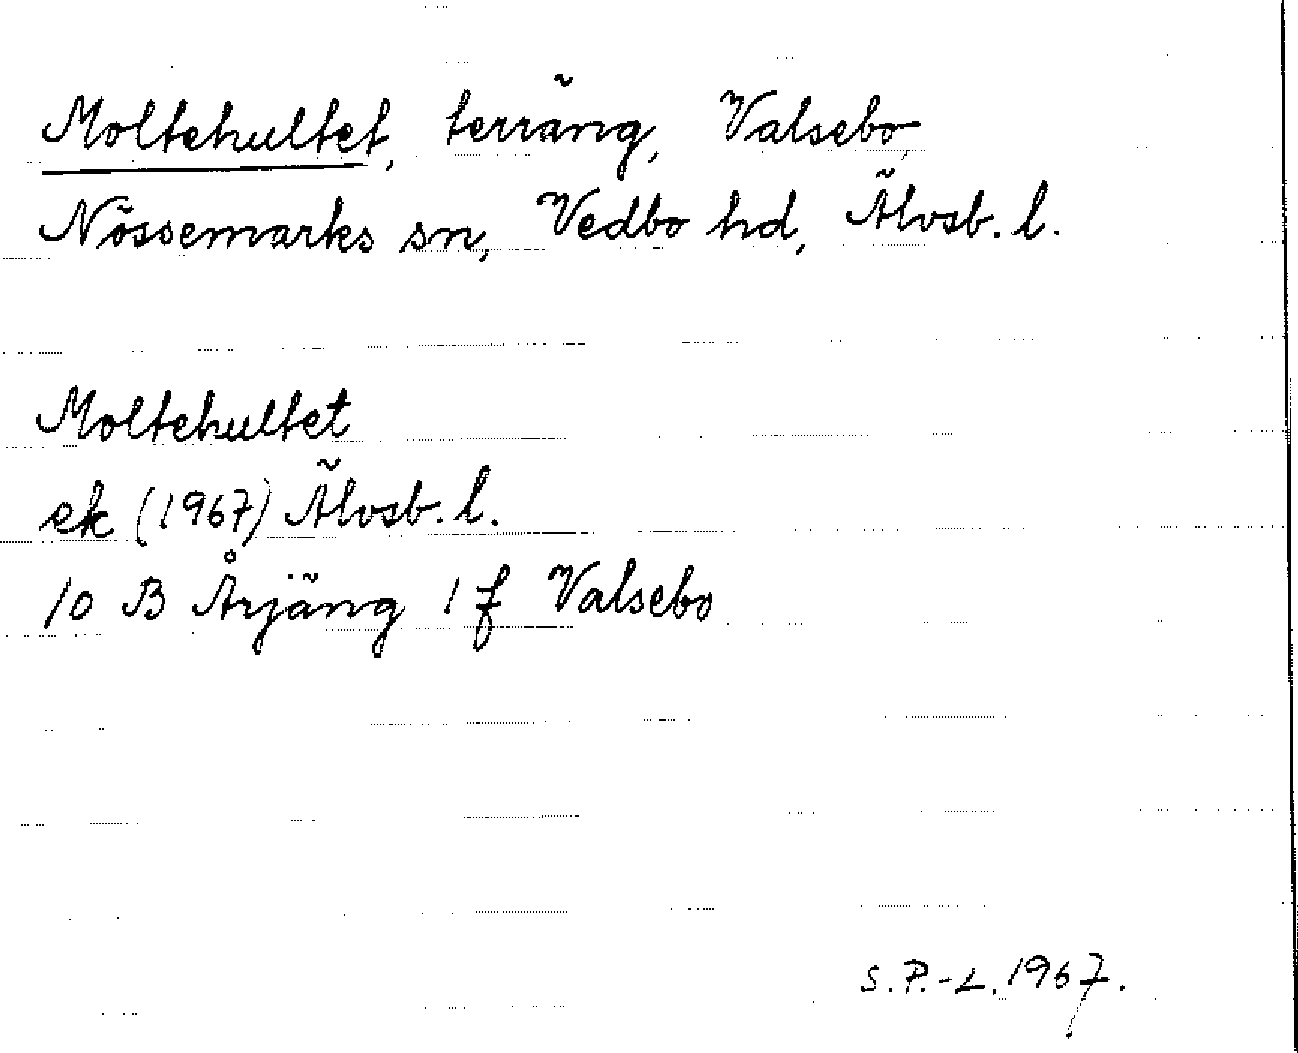 Moltehultet, terräng, Valsebo,
Nössemarks sn, Vedbo hd, Älvsb. l.
Moltehultet
ek (1967) Älvsb. l.
10 B Årjäng 1 f Valsebo
S. P.-L. 1967.